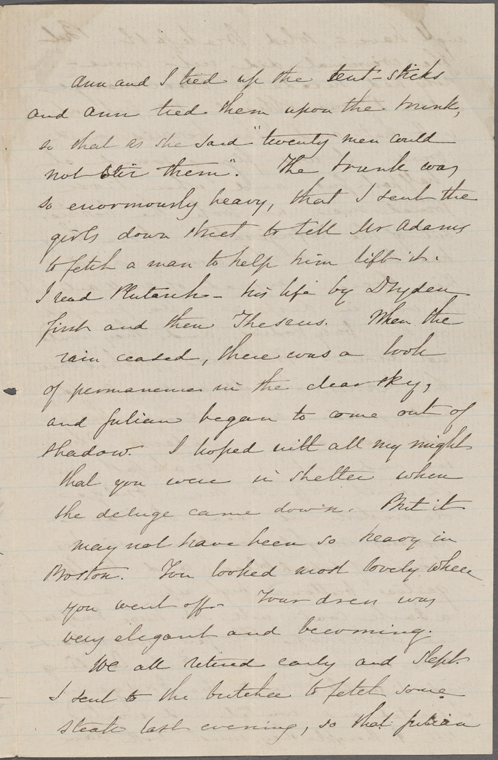 Ann and I tied up the tent-sticks
and Ann tied them upon the trunk,
so that as she said "twenty men could
not stir them". The trunk was
so enormously heavy, that I sent the
girls down street to tell Mr Adams
to fetch a man to help him lift it.
I read Plutarch — his life by Dryden
first and then Theseus. When the
rain ceased, there was a look
of permanence in the clear sky,
and Julian began to come out of
shadow. I hoped with all my might
that you were in shelter when
the deluge came down. But it
may not have been so heavy in
Boston. You looked most lovely when
you went off. Your dress was
very elegant and becoming.
We all retired early and slept.
I sent to the butcher to fetch some
steak last evening, so that Julian